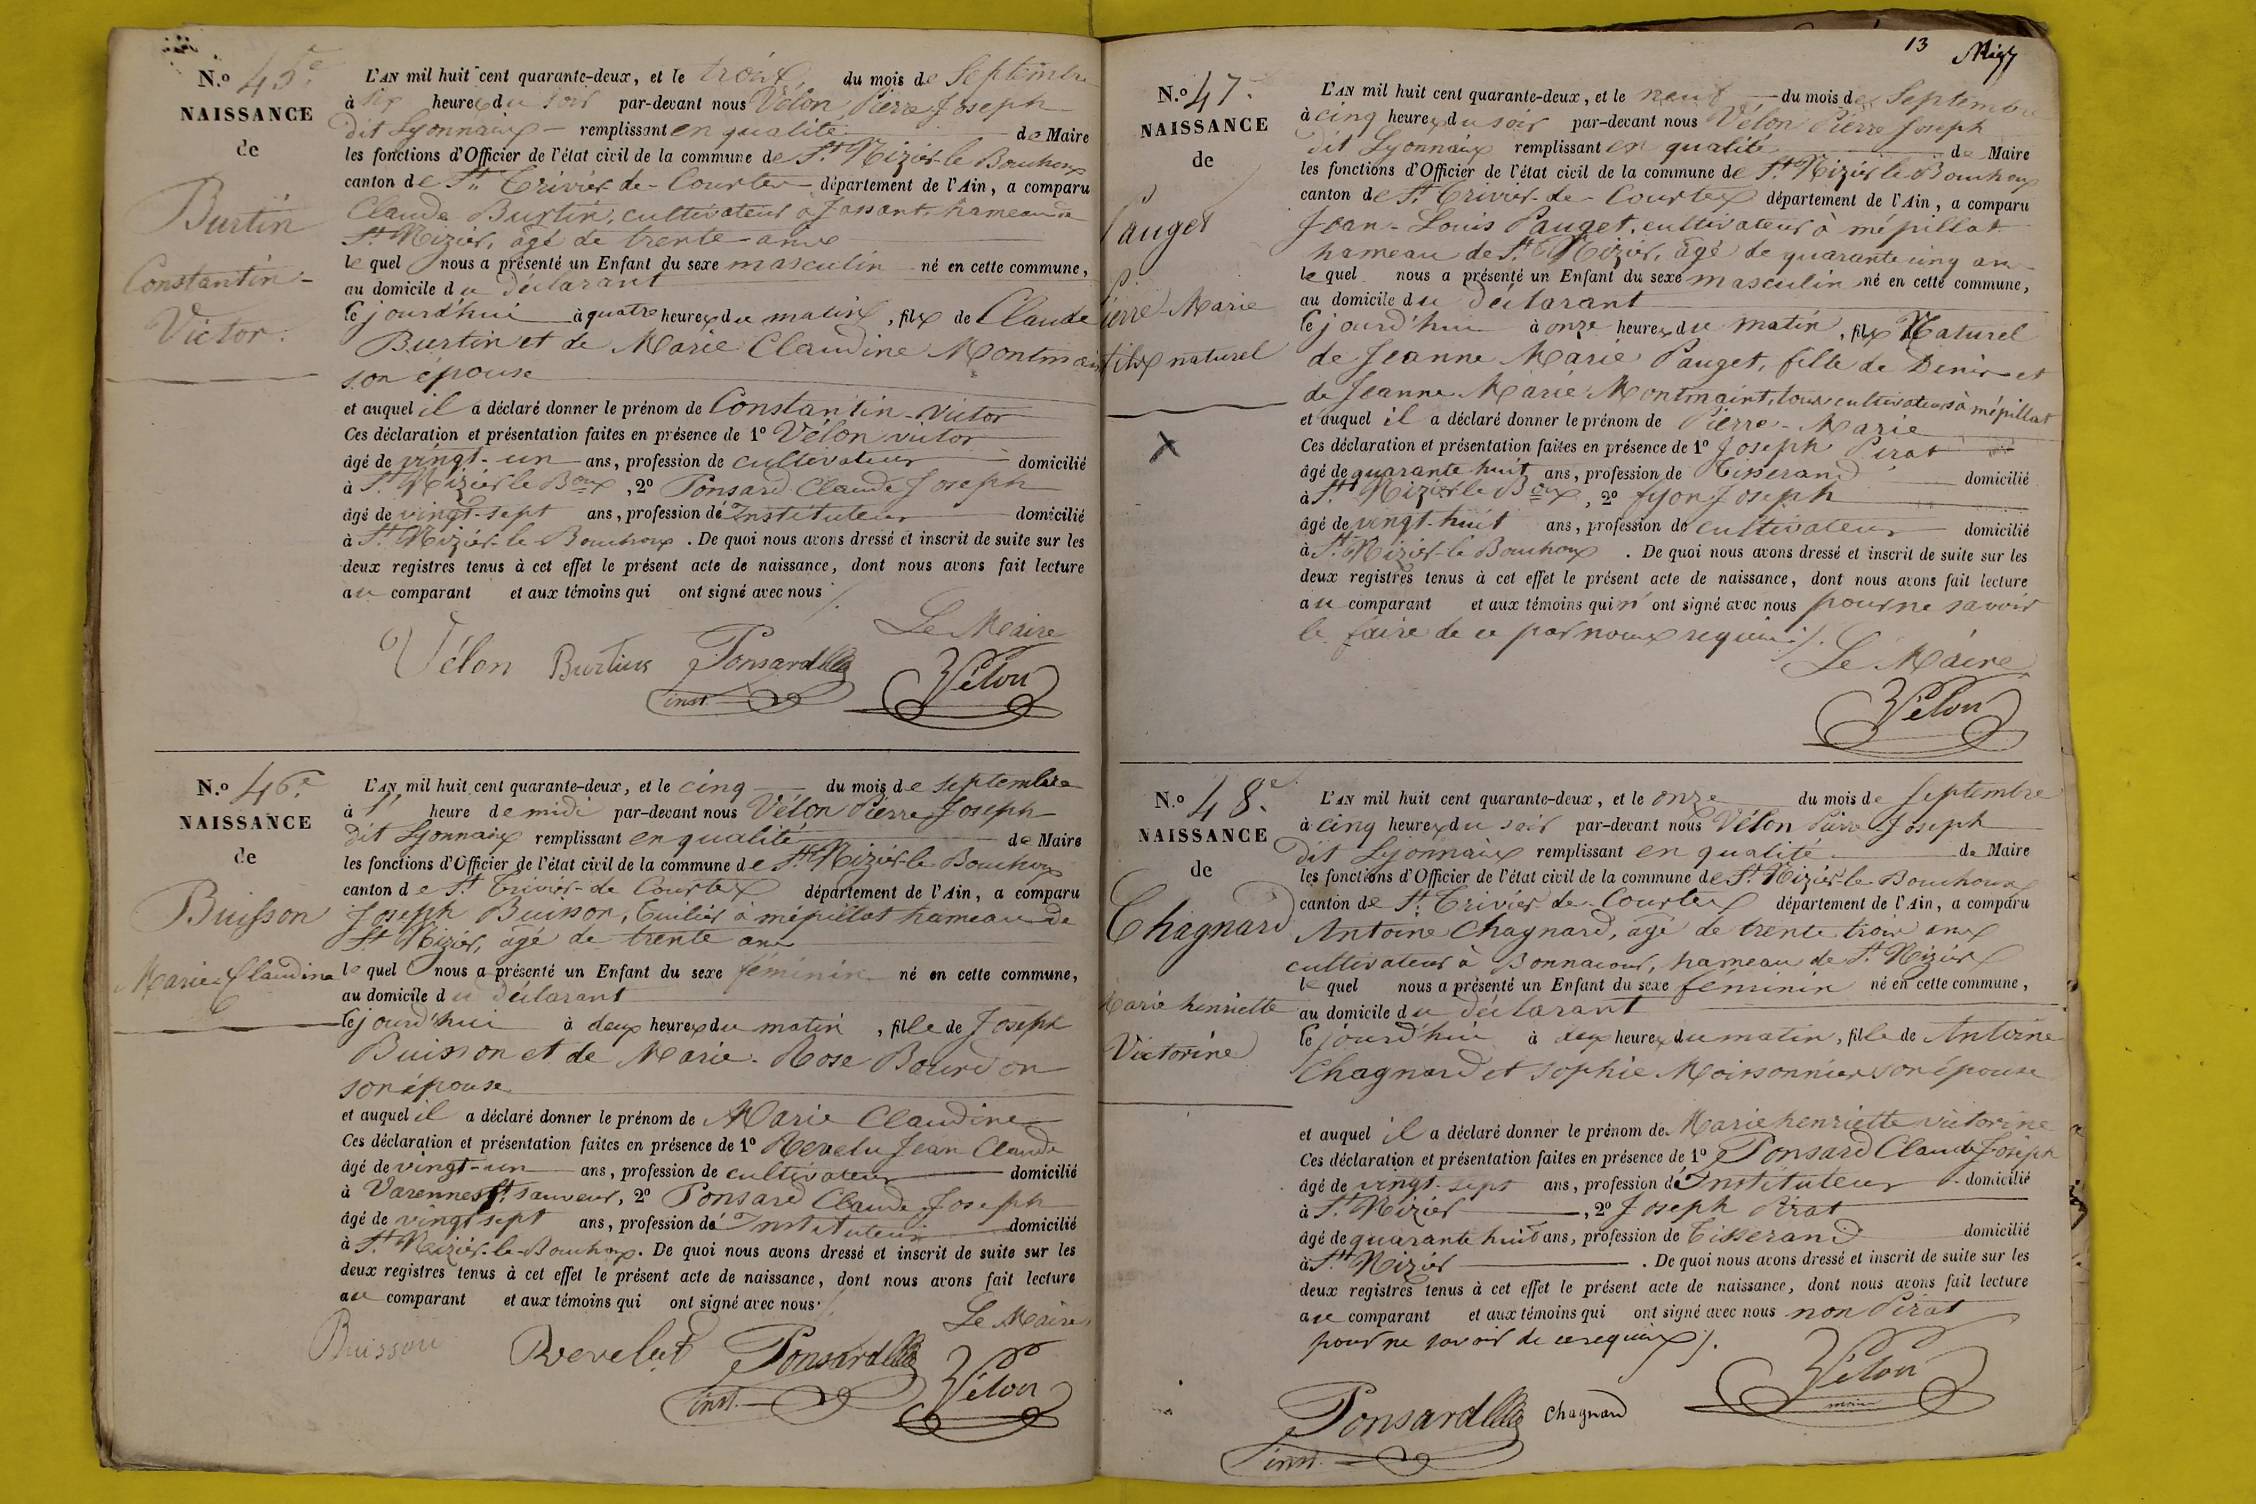 N.o 45e.
NAISSANCE
de
Burtin
Constantin-
Victor.
L'AN mil huit cent quarante-deux, et le trois, du mois de Septembre
à six heures du soir par-devant nous Vélon Pierre Joseph
dit Lyonnais remplissant en qualité de Maire
les fonctions d'Officier de l'état civil de la commune de St. Nizier-le Bouchoux
canton de St. Trivier-de-Courtes département de l'Ain, a comparu
Claude Burtin, cultivateur à Jassant, hameau de
St. Nizier, âgé de trente ans
le quel nous a présenté un Enfant du sexe masculin né en cette commune,
au domicile du déclarant
Cejourd'hui à quatre heures du matin, fils de Claude
Burtin et de Marie Claudine Montmain
son épouse
et auquel il a déclaré donner le prénom de Constantin-Victor
Ces déclaration et présentation faites en présence de 1o Vélon victor
âgé de vingt-un ans, profession de cultivateur domicilié
à St. Nizier le Boux, 2o Ponsard Claude Joseph
âgé de vingt-sept ans, profession dé Instituteur domicilié
à St. Nizier-le-Bouchoux. De quoi nous avons dressé et inscrit de suite sur les
deux registres tenus à cet effet le présent acte de naissance, dont nous avons fait lecture
au comparant et aux témoins qui ont signé avec nous
Le Maire
Vélon Burtin Ponsard Vélon
inst.
N.o 46e.
NAISSANCE
de
Buisson
Marie Claudine
L'AN mil huit cent quarante-deux, et le cinq du mois de septembre
à 1 heure de midi par-devant nous Vélon Pierre Joseph
dit Lyonnais remplissant en qualité de Maire
les fonctions d'Officier de l'état civil de la commune de St. Nizier-le Bouchoux
canton de St. Trivier-de Courtes département de l'Ain, a comparu
Joseph Buisson, Tuilier à mépillat hameau de
St. Nizier, âgé de trente ans
le quel nous a présenté un Enfant du sexe féminin né en cette commune,
au domicile du déclarant
Cejourd'hui à deux heures du matin, fille de Joseph
Buisson et de Marie-Rose Bourdon
son épouse
et auquel il a déclaré donner le prénom de Marie Claudine
Ces déclaration et présentation faites en présence de 1o Revelu Jean Claude
âgé de vingt-un ans, profession de cultivateur domicilié
à Varennes St. sauveur, 2o Ponsard Claude Joseph
âgé de vingt sept ans, profession dé Instituteur domicilié
à St. Nizier-le-Bouchoux. De quoi nous avons dressé et inscrit de suite sur les
deux registres tenus à cet effet le présent acte de naissance, dont nous avons fait lecture
au comparant et aux témoins qui ont signé avec nous.
Le Maire
Buisson Revelut Ponsard Vélon
inst.
13
N.o 47.
NAISSANCE
de
Pauget
Pierre-Marie
fils naturel
X
L'AN mil huit cent quarante-deux, et le neuf du mois de Septembre
à cinq heures du soir par-devant nous Vélon Pierre Joseph
dit Lyonnais remplissant en qualité de Maire
les fonctions d'Officier de l'état civil de la commune de St. Nizier le Bouchoux
canton de St. Trivier-de-Courtes département de l'Ain, a comparu
Jean-Louis Pauget, cultivateur à mépillat
hameau de St. Nizier, âgé de quarante cinq ans
le quel nous a présenté un Enfant du sexe masculin né en cette commune,
au domicile du déclarant
Cejourd'hui à onze heures du matin, fils Naturel
de Jeanne Marie Pauget, fille de Denis et
de Jeanne Marie Montmaint, tous cultivateurs à mépillat
et auquel il a déclaré donner le prénom de Pierre-Marie
Ces déclaration et présentation faites en présence de 1o Joseph Pirat
âgé de quarante huit ans, profession de Tisserand domicilié
à St. Nizier le Boux, 2o fyon Joseph
âgé de vingt-huit ans, profession de cultivateur domicilié
à St. Nizier-le Bouchoux. De quoi nous avons dressé et inscrit de suite sur les
deux registres tenus à cet effet le présent acte de naissance, dont nous avons fait lecture
au comparant et aux témoins qui n'ont signé avec nous pour ne savoir
le faire de ce par nous requis ./.
Le Maire
Vélon
N.o 48e.
NAISSANCE
de
Chagnard
Marie henriette
Victorine
L'AN mil huit cent quarante-deux, et le onze du mois de Septembre
à cinq heures du soir par-devant nous Vélon Pierre Joseph
dit Lyonnais remplissant en qualité de Maire
les fonctions d'Officier de l'état civil de la commune de St. Nizier-le-Bouchoux
canton de St. Trivier-de-Courtes département de l'Ain, a comparu
Antoine Chagnard, âgé de trente trois ans
cultivateur à Bonnacour, hameau de St. Nizier
le quel nous a présenté un Enfant du sexe féminin né en cette commune,
au domicile du déclarant
Cejourd'hui à deux heures du matin, fille de Antoine
Chagnard et Sophie Moissonnier son épouse
et auquel il a déclaré donner le prénom de Marie henriette victorine
Ces déclaration et présentation faites en présence de 1o Ponsard Claude Joseph
âgé de vingt-sept ans, profession dé Instituteur domicilié
à St. Nizier, 2o Joseph Pirat
âgé de quarante huit ans, profession de Tisserand domicilié
à St. Nizier. De quoi nous avons dressé et inscrit de suite sur les
deux registres tenus à cet effet le présent acte de naissance, dont nous avons fait lecture
au comparant et aux témoins qui ont signé avec nous non Pirat
pour ne savoir de ce requis ./.
Vélon
maire
Ponsard Chagnard
inst.